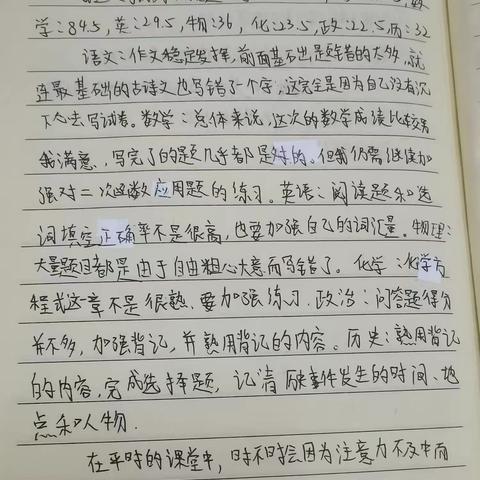 学:84.5,英:29.5,物:36,化:23.5,政:22.5,历:32
语文:作文稳定发挥,前面基础是错的太多,就
连最基础的古诗文也写错了一个字,这完全是因为自己没有沉
下心去写试卷。数学:总体来说,这次的数学成绩比较另
我满意,写完了的题几乎都是对的。但我仍需继续加
强对二次函数应用题的练习。英语:阅读题和选
词填空正确率不是很高,也要加强自己的词汇量。物理:
大量题目都是由于自由粗心大意而写错了。化学:化学方
程式这章不是很熟,要加强练习。政治:问答题得分
并不多,加强背记,并熟用背记的内容。历史:熟用背记
的内容,完成选择题,记清历史事件发生的时间、地
点和人物.
在平时的课堂中,时不时会因为注意力不及中而